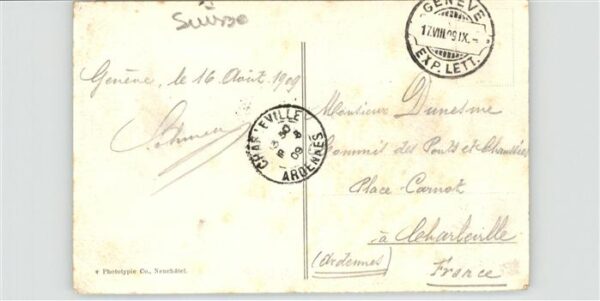 Suisse
GENÈVE
17.VIII.09 IX.
EXP. LETT.
Genève, le 16 Août 1909
CHARLEVILLE
ARDENNES
Monsieur Dunesme
Commis des Ponts et Chaussées
Place Carnot
à Charleville
(Ardennes)
France
Phototypie Co., Neuchâtel.